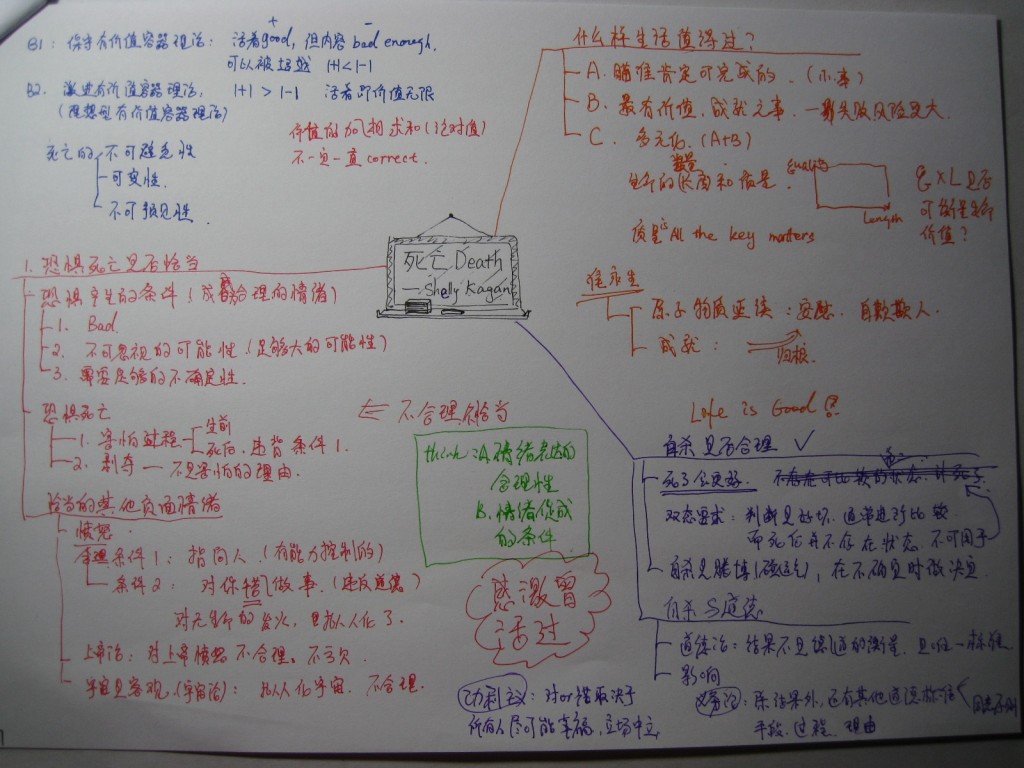 B1: 保守有价值容器理论: 活着good, 但内容 bad enough,
+ −
可以被超越 |+|<|−|
B2. 激进有价值容器理论, |+| > |−| 活着即价值无限
(理想型有价值容器理论)
价值的加相求和(绝对值)
不一定一直correct.
死亡的 不可避免性
可变性.
不可预见性.
什么样生活值得过?
A. 瞄准肯定可完成的. (小事)
B. 最有价值, 成就 大.
C. 多元化. (A+B)
数量
的长度和质量. Quality
Length
Q×L 是否
可衡量生命
价值?
质量is All the key matters
死亡 Death
— Shelly Kagan
1. 恐惧死亡是否恰当
恐惧产生的条件 (成为合理的情绪)
1. Bad.
2. 不可忽视的可能性 (足够大的可能性)
3. 需要足够的不确定性.
恐惧死亡
⇐ 不合理不恰当
1. 害怕过程 生前
死后, 违背条件1.
2. 剥夺 — 不是害怕的理由.
恰当的其他负面情绪
愤怒
合理条件1: 指向人 (有能力控制的)
条件2: 对你错误做事. (违反道德)
对无生命的发火, 是拟人化了.
上帝论: 对上帝愤怒 不合理. 不亏欠.
宇宙是客观 (宇宙论): 拟人化宇宙. 不合理.
think: A. 情绪表达的
合理性
B. 情绪促成
的条件
感激曾
活过
难永生
原子物质延续: 安慰. 自欺欺人.
成就:
归根.
Life is Good?
自杀是否合理 ✓
死了会更好.
双态要求: 判断是好坏. 通常进行比较
而死亡并不存在状态 不可用于
自杀是赌博(碰运气), 在不确定时做决定.
自杀与道德
道德论: 结果不是 道德的衡量. 且唯一标准
影响
义务论: 除结果外, 还有其他道德标准
手段. 过程. 理由
功利主义: 对or错取决于
所有人尽可能幸福, 立场中立